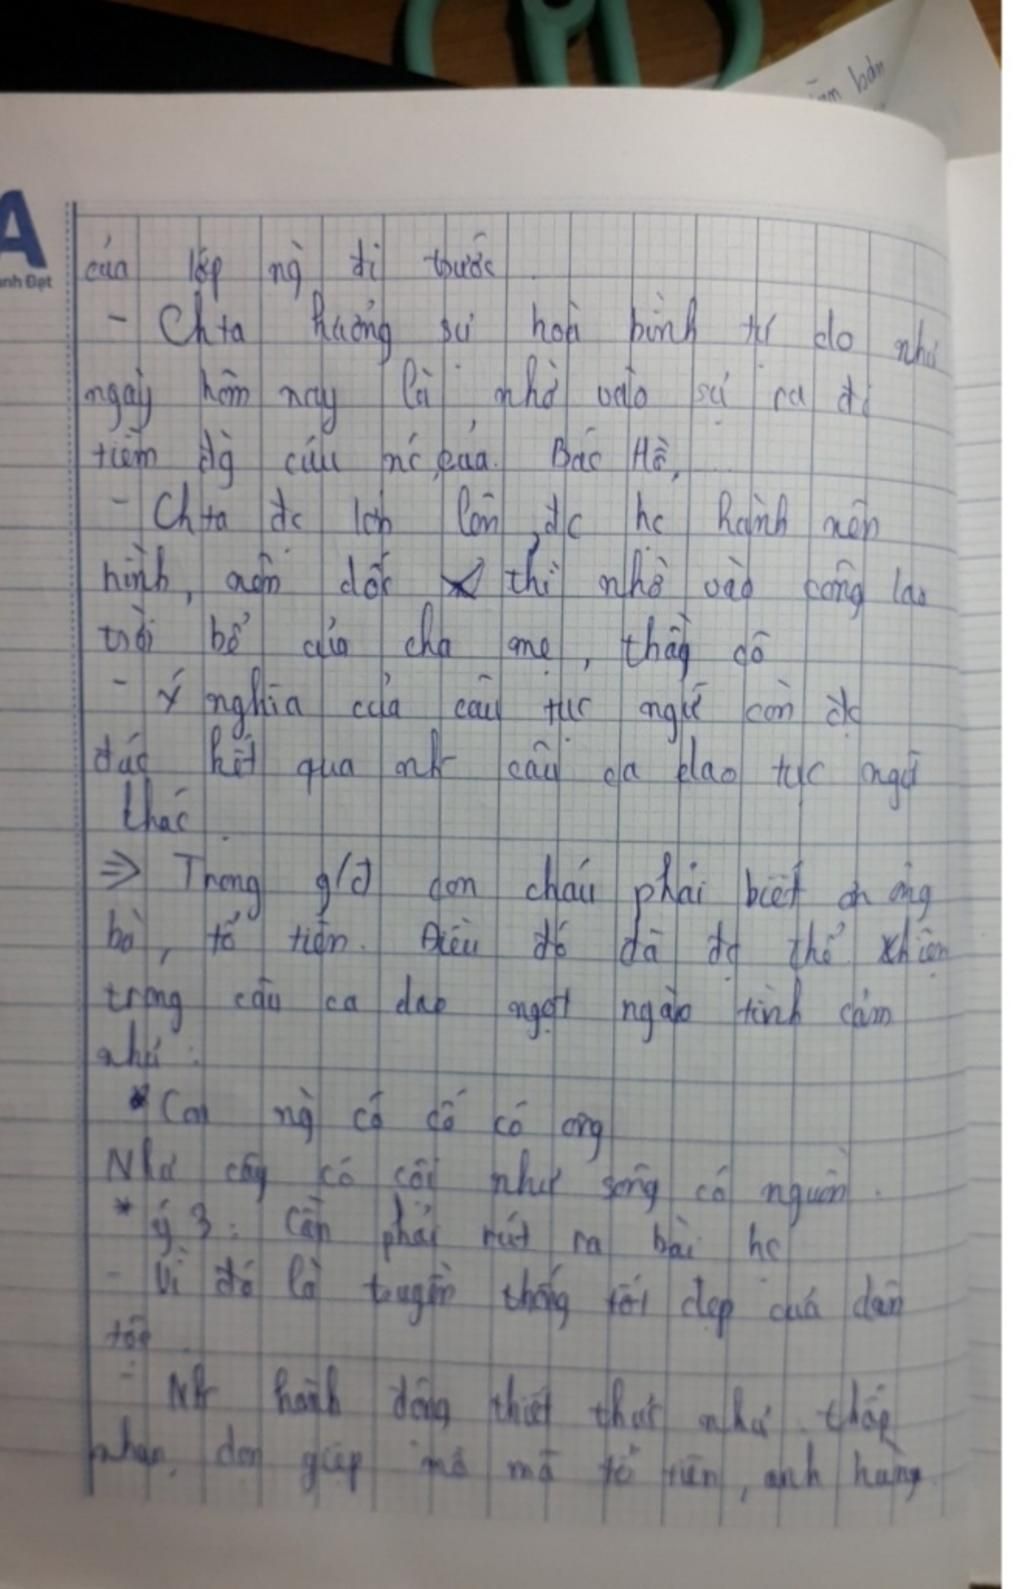 ăn bản
A
anh Đạt
của lớp ng đi trước
- Chta hưởng sự hoà bình tự do như
ngày hôm nay là nhờ vào sự ra đi
tiềm đg cứu nc của Bác Hồ,
- Chta đc lớn lên, đc hc hành nên
hình, nên dóc thì nhờ vào công lao
trời bể của cha mẹ, thầy cô
- Ý nghĩa của câu tục ngữ còn đc
đúc kết qua nh câu ca dao tục ngữ
khác
=> Trong g/đ con cháu phải biết ơn ông
bà, tổ tiên. Điều đó đã đc thể hiện
trong câu ca dao ngọt ngào tình cảm
như:
* Con ng có cố có ông
Như cây có cội như sông có nguồn.
* ý 3: Cần phải rút ra bài hc
- Vì đó là truyền thống tốt đẹp của dân
tộc
- Nh hành động thiết thực như thắp
nhan, dọn giúp mồ mả tổ tiên, anh hùng